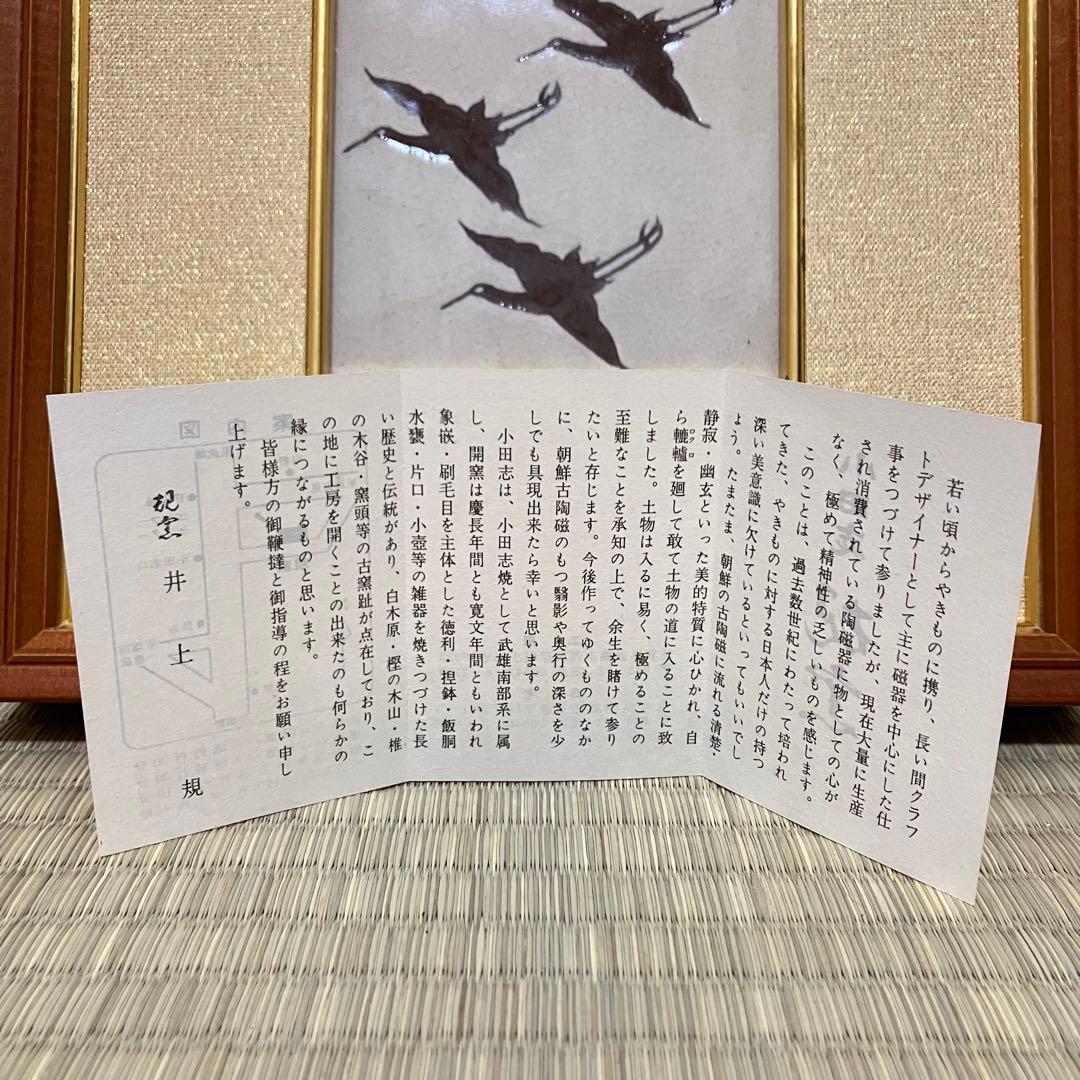 若い頃からやきものに携り、長い間クラフ
トデザイナーとして主に磁器を中心にした仕
事をつづけて参りましたが、現在大量に生産
され消費されている陶磁器に物としての心が
なく、極めて精神性の乏しいものを感じます。
このことは、過去数世紀にわたって培われ
てきた、やきものに対する日本人だけの持つ
深い美意識に欠けているといってもいいでし
ょう。たまたま、朝鮮の古陶磁に流れる清楚・
静寂・幽玄といった美的特質に心ひかれ、自
ら轆轤を廻して敢て土物の道に入ることに致
ロクロ
しました。土物は入るに易く、極めることの
至難なことを承知の上で、余生を賭けて参り
たいと存じます。今後作ってゆくもののなか
に、朝鮮古陶磁のもつ翳影や奥行の深さを少
しでも具現出来たら幸いと思います。
小田志は、小田志焼として武雄南部系に属
し、開窯は慶長年間とも寛文年間ともいわれ
象嵌・刷毛目を主体とした徳利・捏鉢・飯胴
水甕・片口・小壺等の雑器を焼きつづけた長
い歴史と伝統があり、白木原・樫の木山・椎
の木谷・窯頭等の古窯趾が点在しており、こ
の地に工房を開くことの出来たのも何らかの
縁につながるものと思います。
皆様方の御鞭撻と御指導の程をお願い申し
上げます。
井上規
案内図